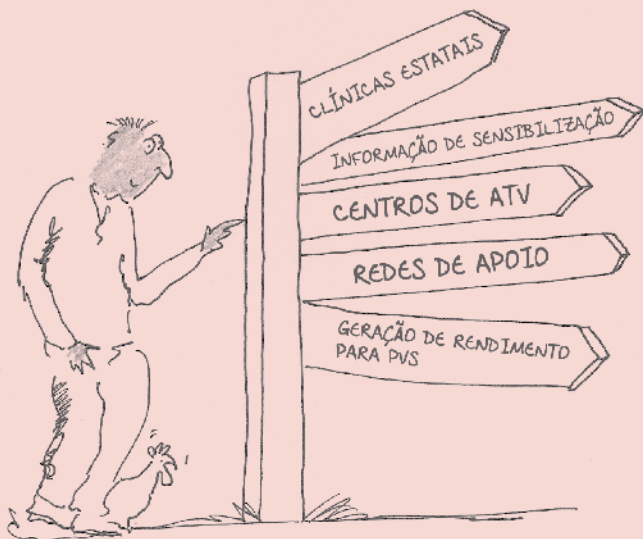 CLÍNICAS ESTATAIS
INFORMAÇÃO DE SENSIBILIZAÇÃO
CENTROS DE ATV
REDES DE APOIO
GERAÇÃO DE RENDIMENTO
PARA PVS